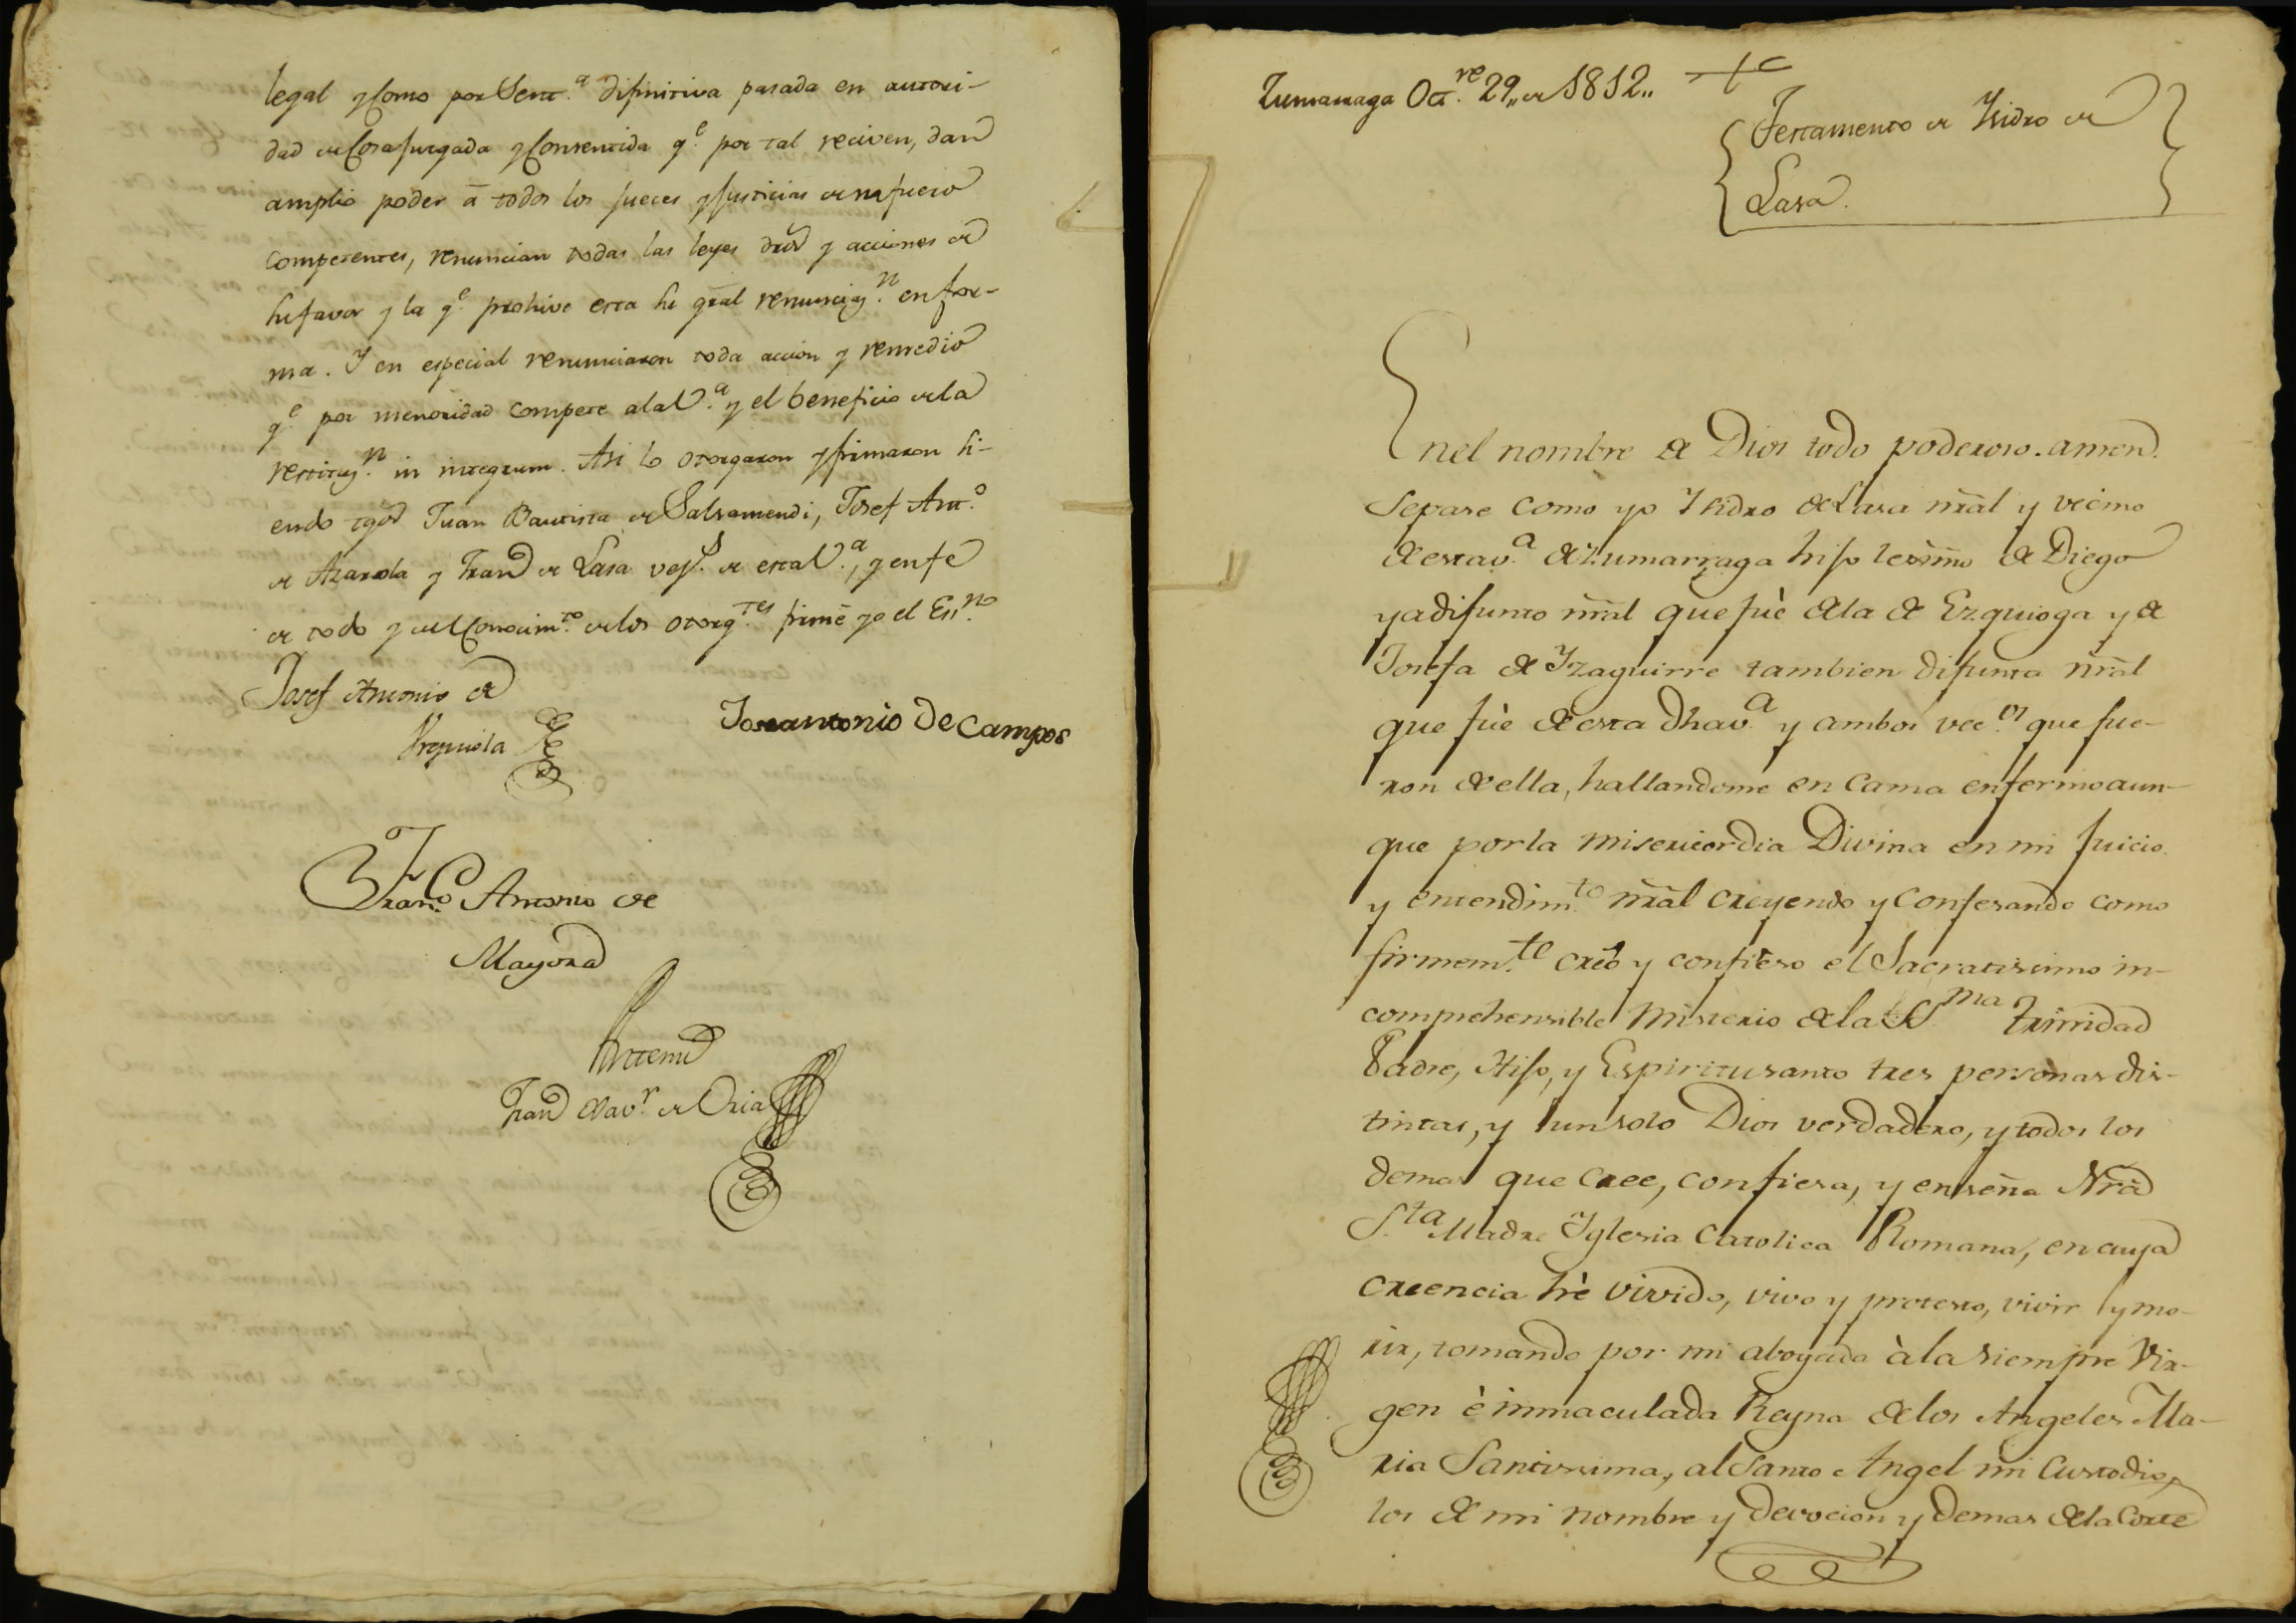 legal y como por Sent.ª difinitiva pasada en autori-
dad de Cosa juzgada y Consentida q.e por tal reciven, dan
amplio poder â todos los jueces y justicias de su fuero
competentes, renuncian todas las leyes dros y acciones de
su favor y la q.e prohive esta su gral renunciaz.n en for-
ma. Y en especial renunciaron toda accion y remedio
q.e por menoridad compete a la V.ª y el beneficio de la
restituz.n in integrum. Asi lo otorgaron y firmaron si-
endo tgos Juan Bautista de Salsamendi, Josef Ant.o
de Azarola y Fran.co de Lasa vez.s de esta V.ª, y en fe
de todo y del Conocim.to de los otorg.tes firmé yo el Ess.no
Josef Antonio de
Urquiola
Joseantonio De Campos
Fran.co Antonio de
Mayora
Antemi
Fran.co Xav.r de Oria
Zumarraga Oct.re 29,, de 1812,,
Testamento de Ysidro de
Lasa
En el nombre de Dios todo poderoso. amen.
Sepase como yo Ysidro de Lasa nral y vecino
de esta v.ª de Zumarraga hijo lexmo de Diego
ya difunto nral que fuè de la de Ezquioga y de
Josefa de Yzaguirre tambien difunta nral
que fuè de esta dha v.ª y ambos vec.os que fue-
ron de ella, hallandome en cama enfermo aun-
que por la misericordia Divina en mi juicio
y entendim.to nral creyendo y confesando como
firmem.te creo y confieso el Sacratisimo in-
comprehensible Misterio de la S.ma trinidad
Padre, Hijo, y Espiritusanto tres personas dis-
tintas, y un solo Dios verdadero, y todos los
demas que cree, confiesa, y enseña Nrâ
S.ta Madre Yglesia Catolica Romana, en cuya
creencia hè vivido, vivo y protesto, vivir y mo-
rir, tomando por mi abogada à la siempre Vir-
gen è inmaculada Reyna de los Angeles Ma-
ria Santissima, al Santo Angel mi Custodio,
los de mi nombre y devocion y demas de la Corte